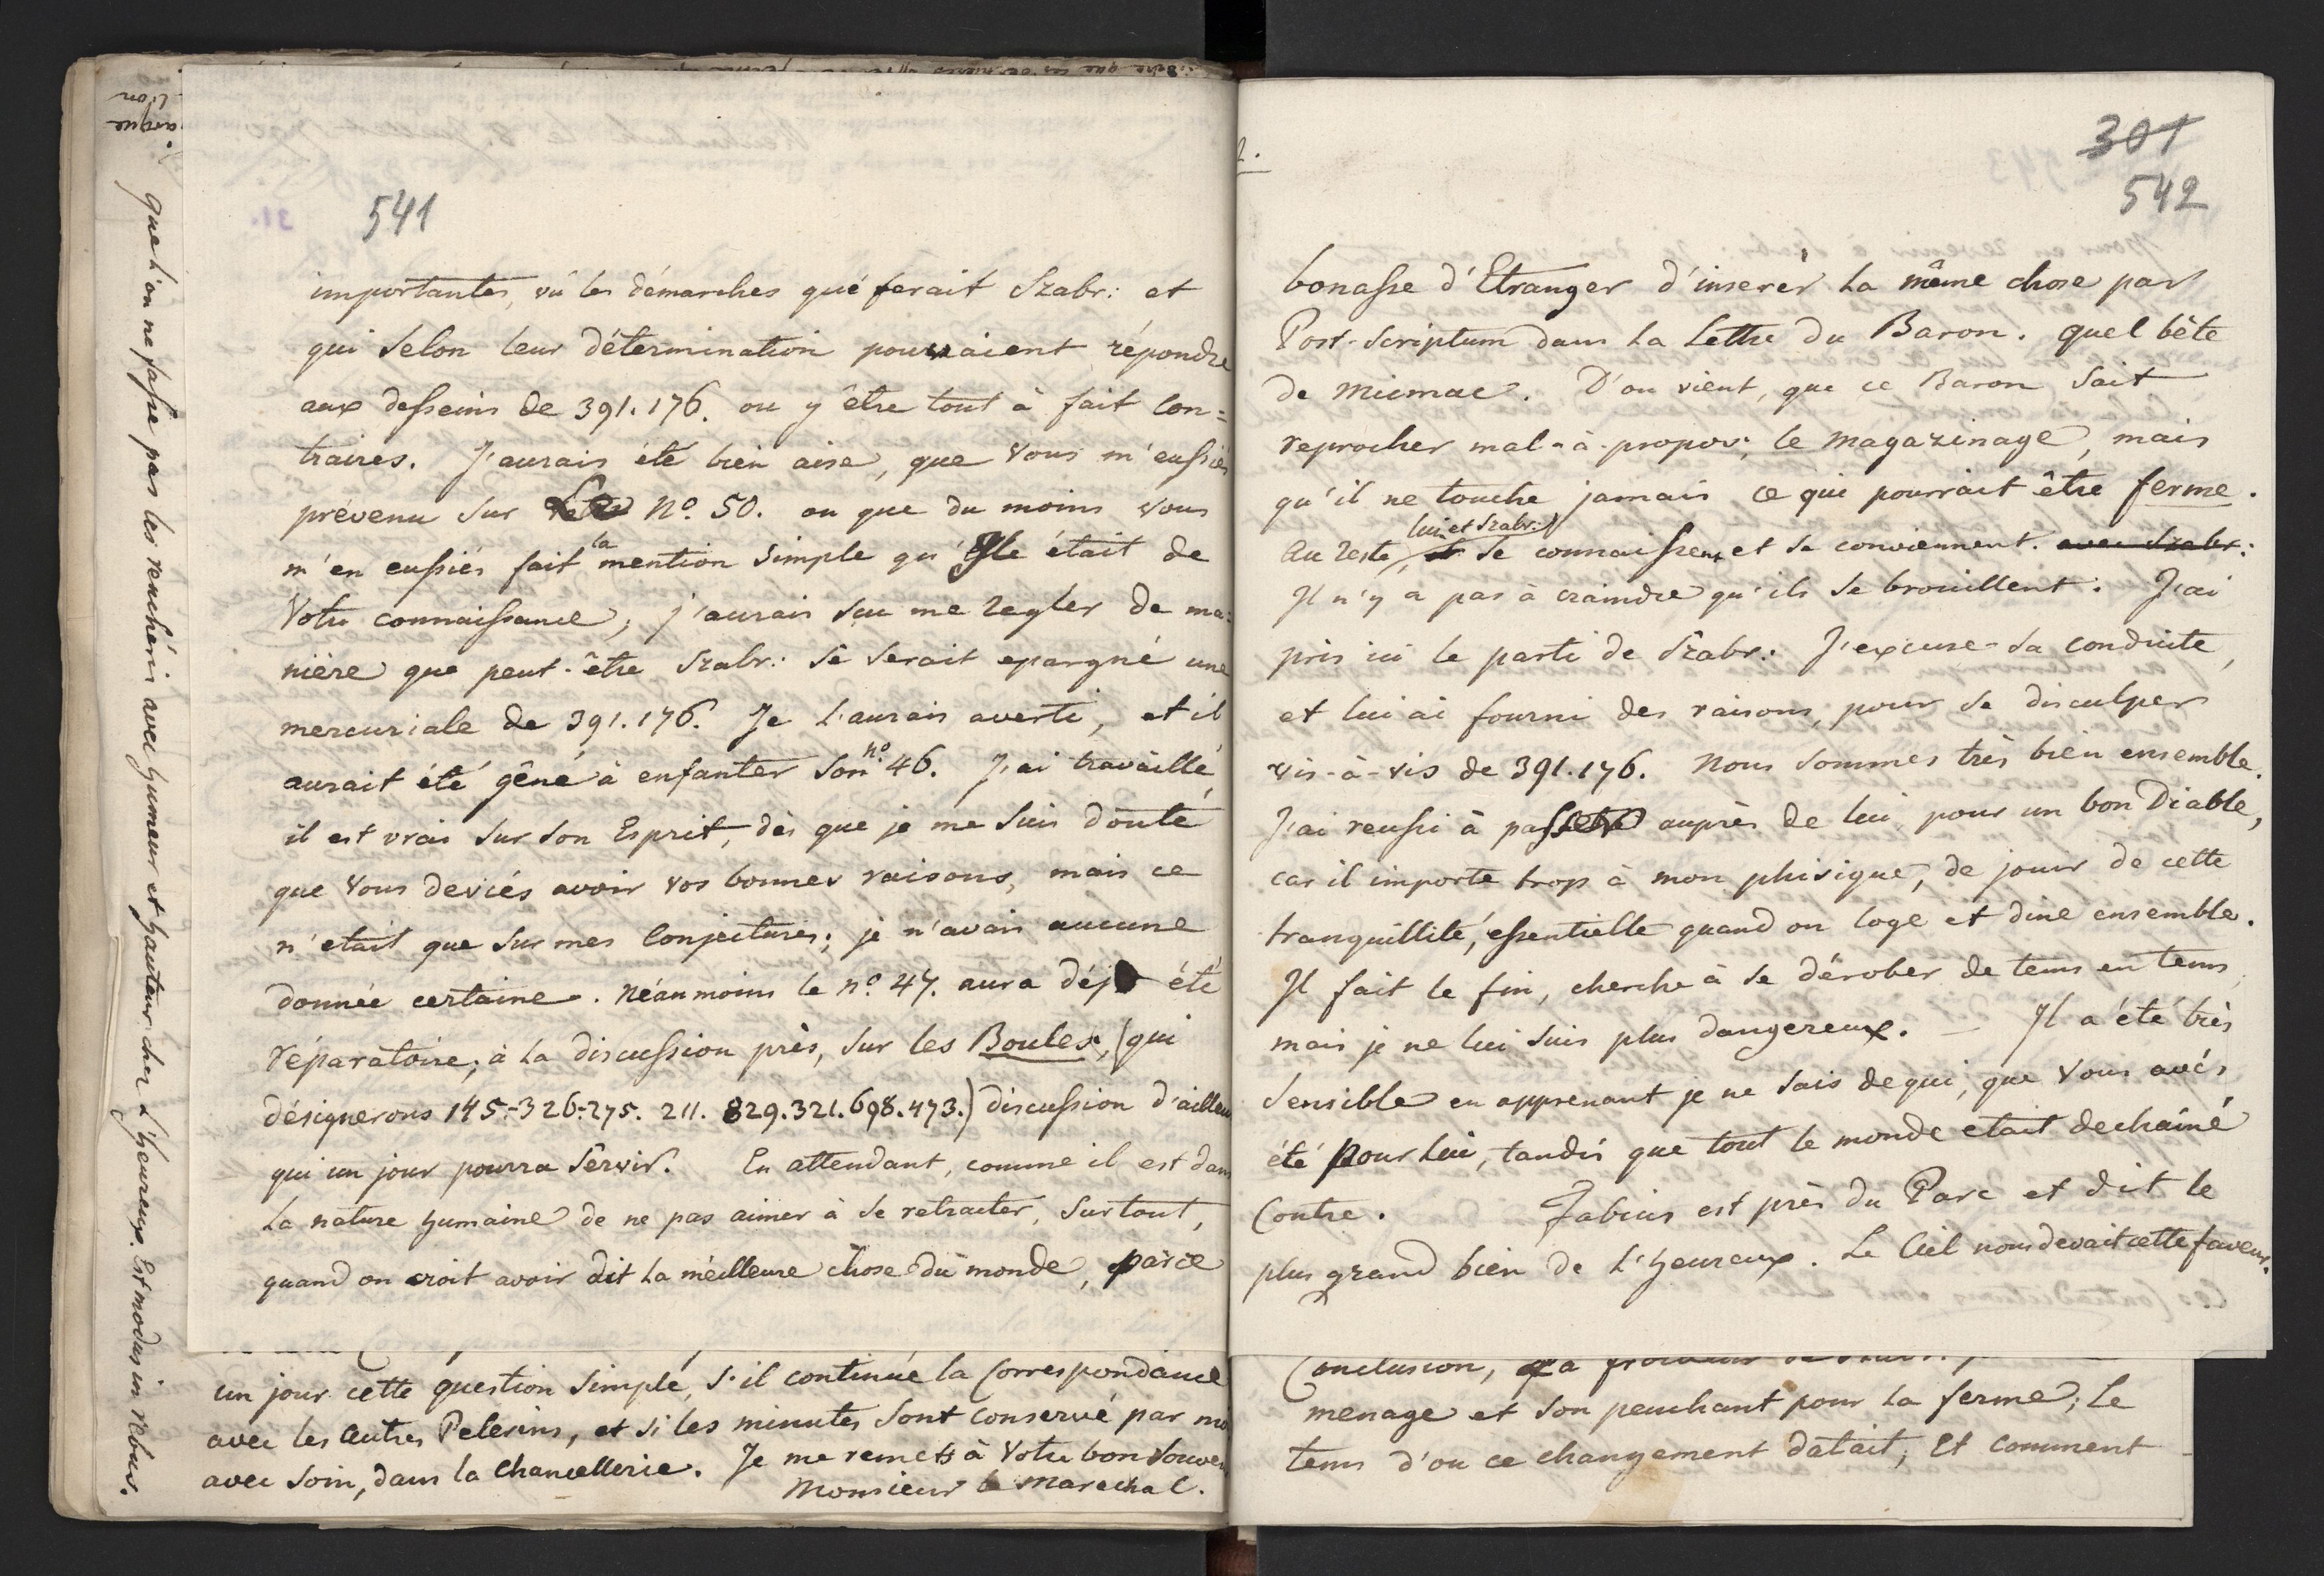 541
importantes, vû les démarches que ferait Szabr: et
qui selon leur détermination pourraient répondre
aux desseins de 391.176. ou y être tout à fait con=
traires. J'aurais été bien aise, que Vous m'eussiés
prévenu sur Le N.º 50. ou que du moins Vous
m'en eussiés fait la mention simple qu'Elle était de
Votre connaissance, j'aurais sçu me regler de ma=
nière que peut-être Szabr: se serait epargné une
mercuriale de 391.176. Je l'aurais averti, et il
aurait été gêné à enfanter son nº 46. J'ai travaillé,
il est vrai sur son Esprit, dès que je me suis douté
que Vous deviés avoir vos bonnes raisons, mais ce
n'etait que sur mes Conjectures; je n'avais aucune
donnée certaine. Néanmoins le nº 47. aura déja été
réparatoire; à la discussion près, sur les Boules, (qui
désignerons 145.-326.-275. 211. 829.321.698.473.) discussion d'ailleu
qui un jour pourra servir. En attendant, comme il est dans
la nature humaine de ne pas aimer à se retracter, surtout,
quand on croit avoir dit la meilleure chose du monde, parce
un jour cette question simple, s'il continue la Correspondance
avec les autres Pelerins, et si les minutes sont conservé par
avec soin, dans la Chancellerie. Je me remets à Votre bon
Monsieur le Marechal.
que l'on ne fasse pas les renchéris avec humeur et hauteur cher L'heureux. Est modus in rebus.
301
542
bonasse d'Etranger d'inserér la même chose par
Post-Scriptum dans la Lettre du Baron. quel bête
de micmac. D'ou vient, que ce Baron Sait
reprocher mal-à-propos, le magazinage, mais
qu'il ne touche jamais ce qui pourrait être ferme.
Au reste, lui et Szabr: se connaissent et se conviennent. avec Szabr:
Il n'y a pas à craindre qu'ils se brouillent. J'ai
pris ici le parti de Szabr: J'excuse sa conduite,
et lui ai fourni des raisons, pour se disculper
vis-à-vis de 391.176. Nous sommes très bien ensemble.
J'ai reussi à passer auprès de lui pour un bon Diable,
car il importe trop à mon phisique, de jouir de cette
tranquillité, essentielle quand on loge et dine ensemble.
Il fait le fin, cherche à se dérober de tems en tems,
mais je ne lui suis plus dangereux. — Il a été très
sensible en apprenant je ne sais de qui, que Vous avés
été pour lui, tandis que tout le monde etait dechainé
Contre. Fabius est près du Parc et dit le
plus grand bien de L'heureux. Le Ciel nous devait cette faveur.
Conclusion,
menage et son penchant pour la ferme; le
tems d'ou ce changement datait; Et comment